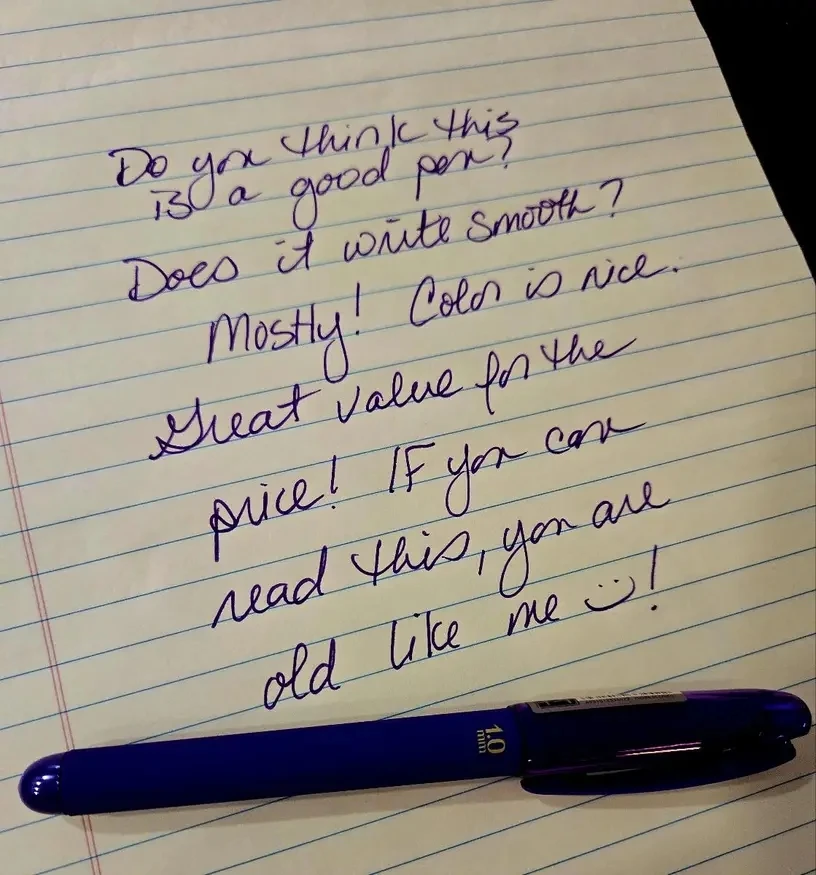 Do you think this
is a good pen?
Does it write smooth?
Mostly! Color is nice.
Great value for the
price! IF you can
read this, you are
old like me :)!
1.0
mm